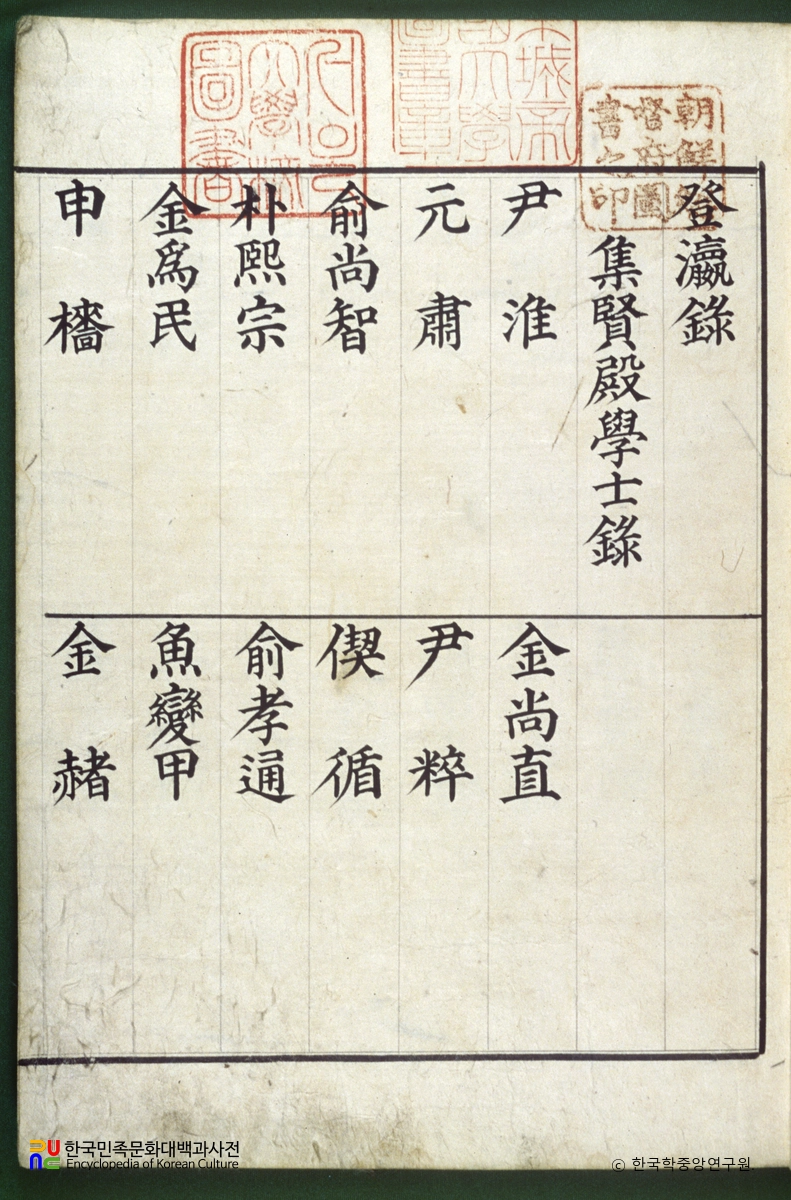 朝鮮總
督府圖
書之印
城帝
國大學
圖書章
大學校
圖書
登瀛錄
集賢殿學士錄
尹淮
元肅
俞尚智
朴熙宗
金爲民
申檣
金尚直
尹粹
偰循
俞孝通
魚變甲
金赭
한국민족문화대백과사전
Encyclopedia of Korean Culture
© 한국학중앙연구원